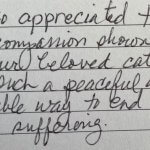 so appreciated t
compassion shown
our beloved cat
such a peaceful a
ble way to end
suffering.